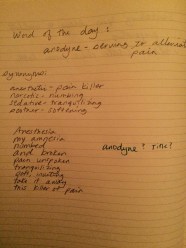 Word of the day :
anodyne - serving to alleviate
pain
Synonyms:
anaesthetic - pain killer
narcotic - numbing
sedative - tranquilizing
- softening
Anesthesia
my amnesia
numbed
and broken
pain unspoken
tranquilizing
soft,
take it away
this killer of pain
anodyne? Tina?